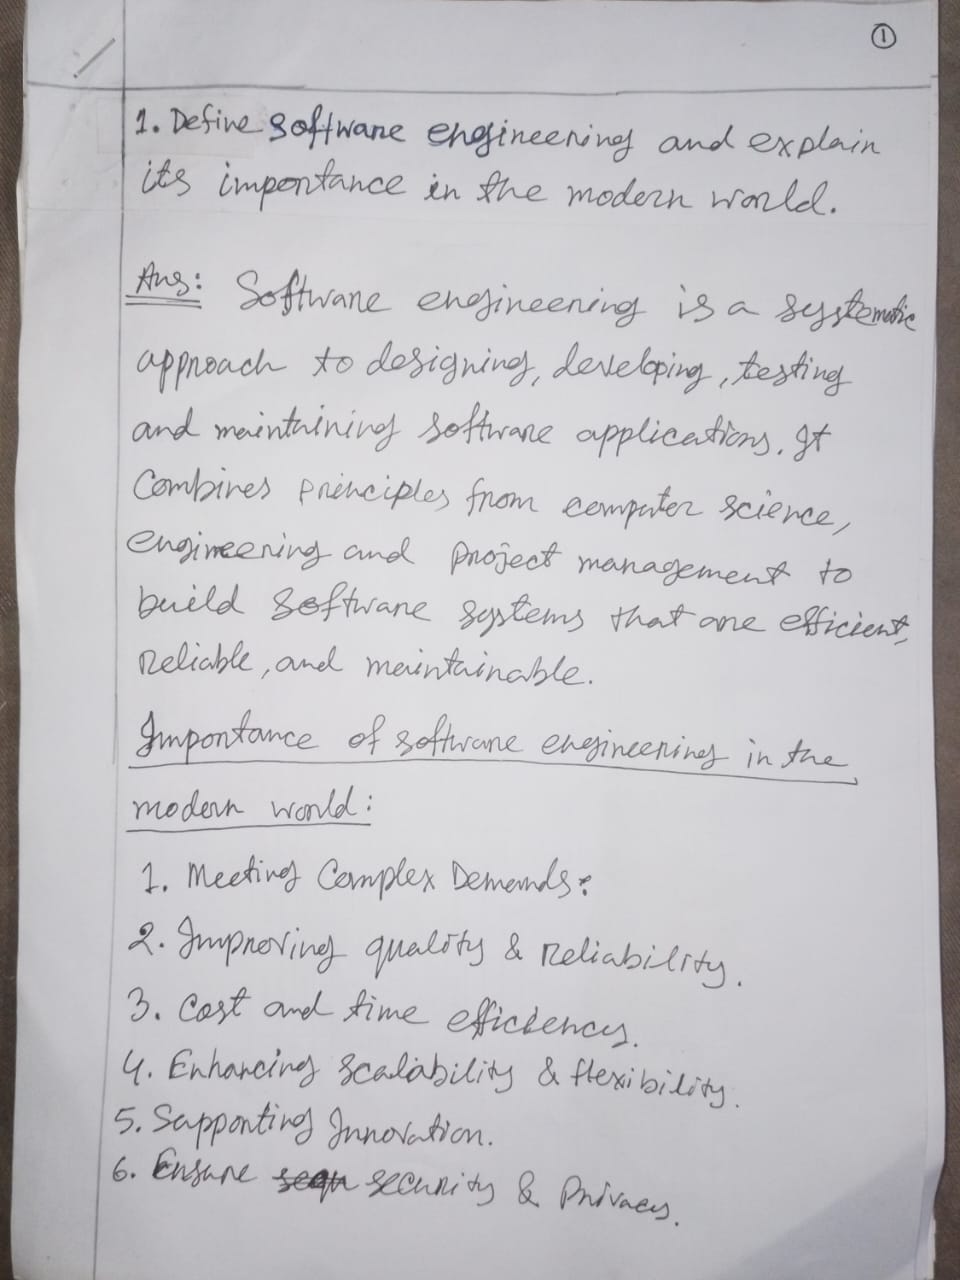 1
1. Define software engineering and explain
its importance in the modern world.
Ans: Software engineering is a systematic
approach to designing, developing, testing
and maintaining software applications. It
Combines principles from computer science,
engineering and project management to
build software systems that are efficient,
reliable, and maintainable.
Importance of software engineering in the
modern world:
1. Meeting Complex Demands:
2. Improving quality & reliability.
3. Cost and time efficiency.
4. Enhancing scalability & flexibility.
5. Supporting Innovation.
6. Ensure security & Privacy.